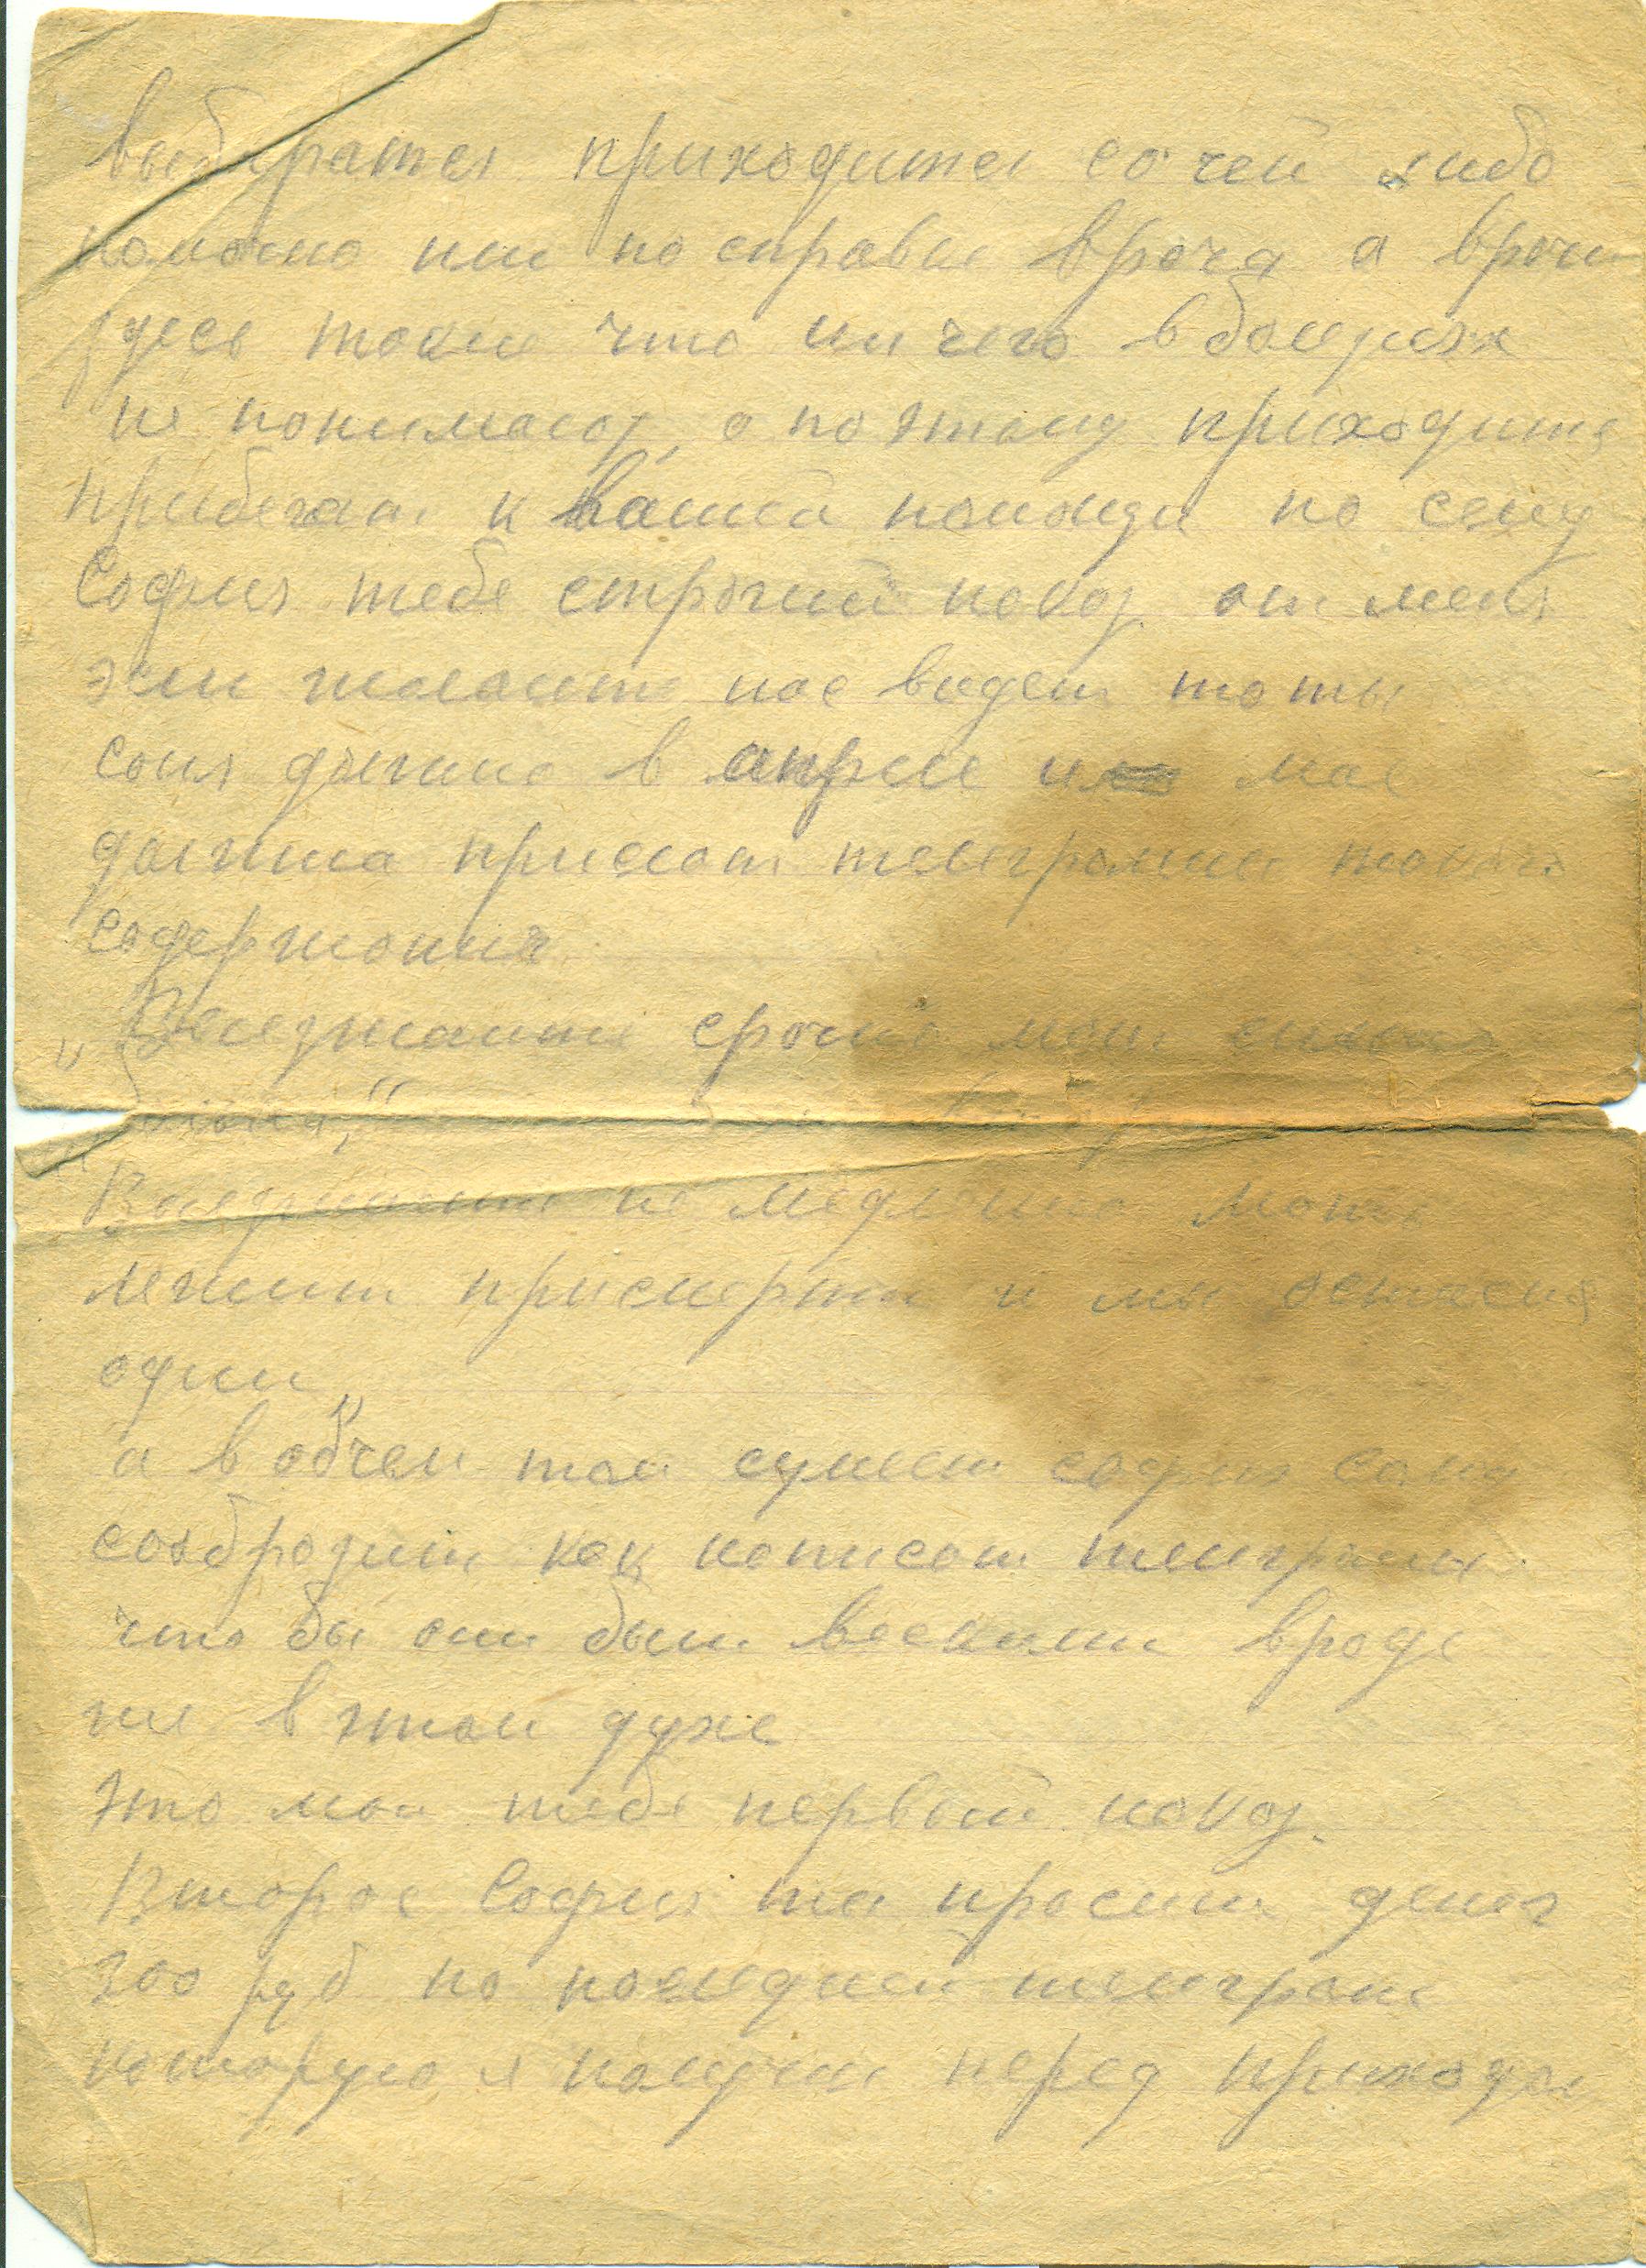 выбиратся приходится со чей либо
помощю или по справке врача а врачи
здесь такие что ни чего в болезнях
не понимают, а по этому приходится
прибегать к вашей помощи по сему
София тебе строгий наказ от меня
эсли желаите нас видеть то ты
Соня должна в апреле или мае
должна прислать телеграмми такого
содержания
„Выезжаите срочно мать сильно
больна,"
"Выезжаите не медленно мать
лежит присмерти и мы остаемся
одни„
а в обчем там сумеет София сама
соабразить как написать телеграмы
что бы они были вескими вроде
же в этом духе
Это мой тебе первый наказ.
Второе София ты просиш денег
300 руб по последней телеграме
которую я получил перед приходом